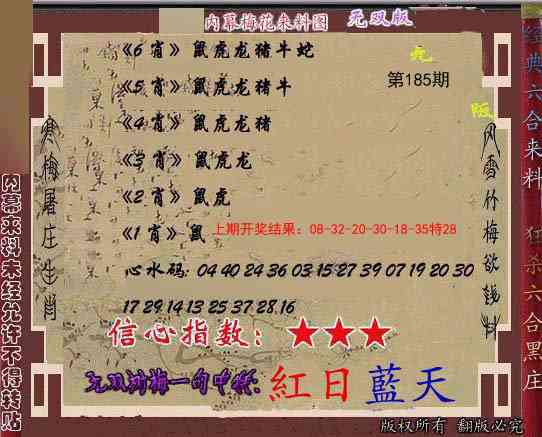 内幕梅花来料图 无双版
《6 肖》 鼠虎龙猪牛蛇
《5 肖》 鼠虎龙猪牛
第185期
《4 肖》 鼠虎龙猪
《3 肖》 鼠虎龙
《2 肖》 鼠虎
《1 肖》 鼠
上期开奖结果：08-32-20-30-18-35特28
心水码: 04 40 24 36 03 15 27 39 07 19 20 30
17 29 14 13 25 37 28 16
信心指数：★★★
无双刘梅一句中特: 紅日藍天
寒梅屠庄生肖
风雪竹梅欲钱料
内幕来料未经允许不得转贴
经典六合来料 狂杀六合黑庄
版权所有 翻版必究